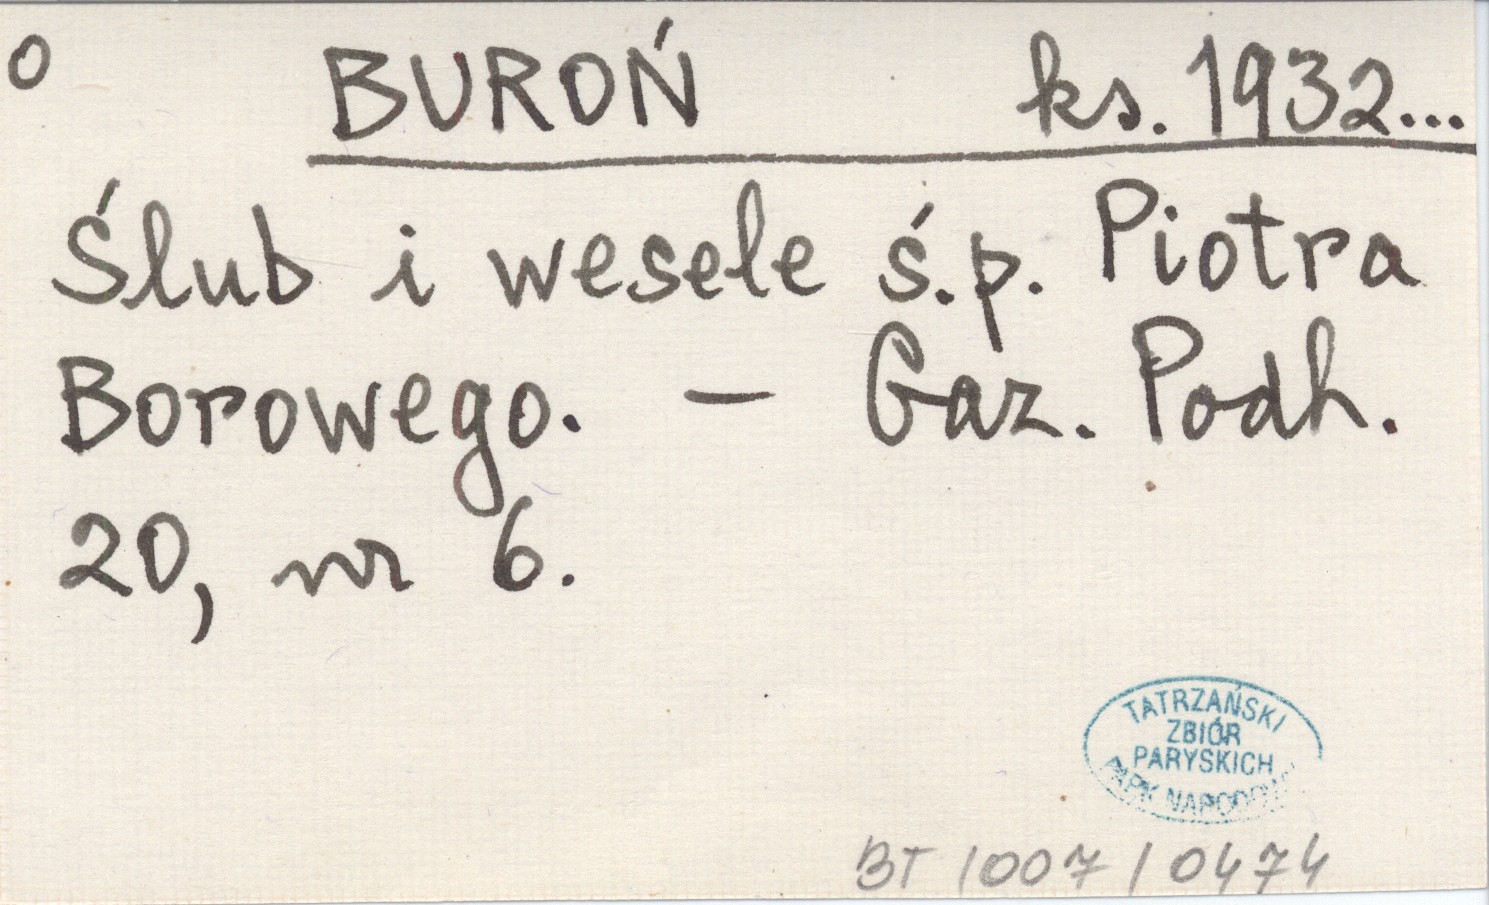 o BUROŃ ks. 1932...
Ślub i wesele ś.p. Piotra
Borowego. — Gaz. Podh.
20, nr 6.
TATRZAŃSKI
ZBIÓR
PARYSKICH
PARK NARODOWY
BT/007/0474